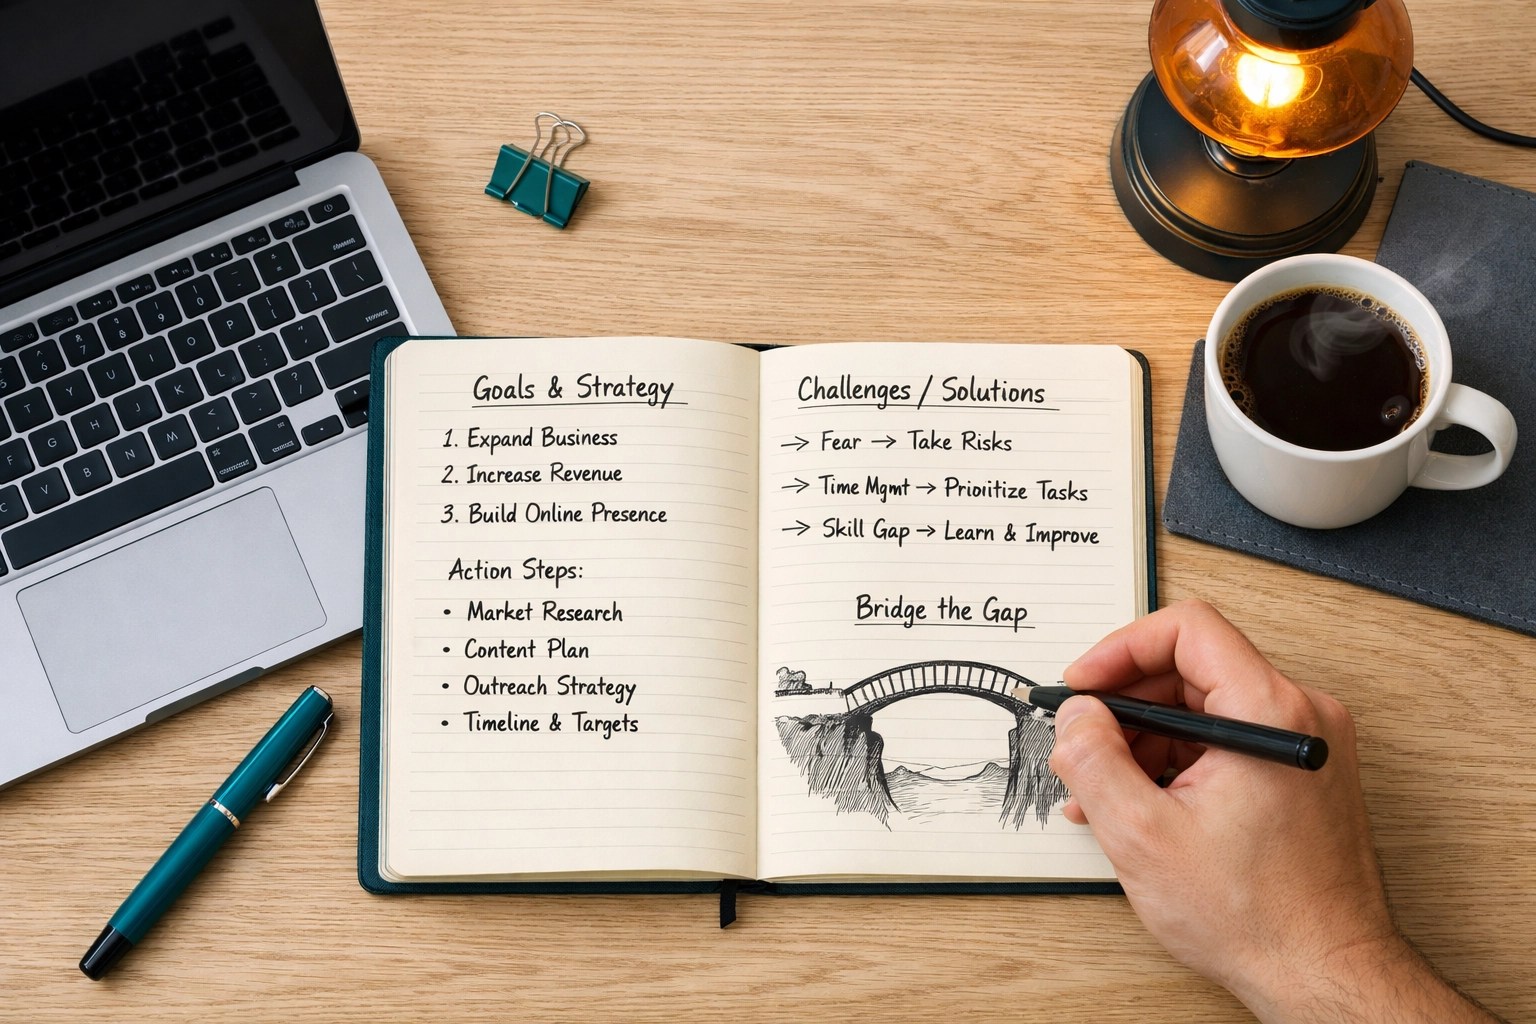 Goals & Strategy
1. Expand Business
2. Increase Revenue
3. Build Online Presence
Action Steps:
• Market Research
• Content Plan
• Outreach Strategy
• Timeline & Targets
Challenges / Solutions
→ Fear → Take Risks
→ Time Mgmt → Prioritize Tasks
→ Skill Gap → Learn & Improve
Bridge the Gap